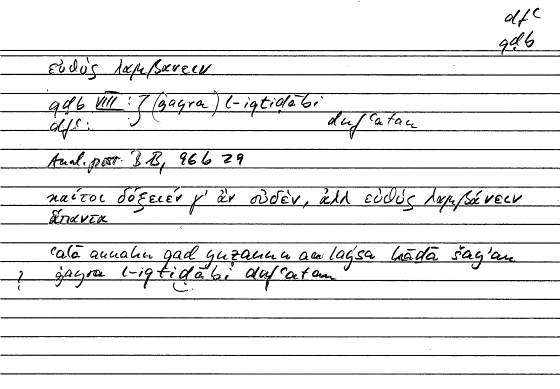 dfᶜ
qḍb
εὐθύς λαμβάνειν
qḍb VIII : } (ġayra) l-iqtiḍābi
dfᶜ : dufᶜatan
Anal. post. B 13, 96b 29
καίτοι δόξειέν γ' ἂν οὐδέν, ἀλλ εὐθύς λαμβάνειν
ἅπαντα
ᶜalā annahu qad yuẓannu an laysa hāḏā šay'an
? ġayra l-iqtiḍābi dufᶜatan